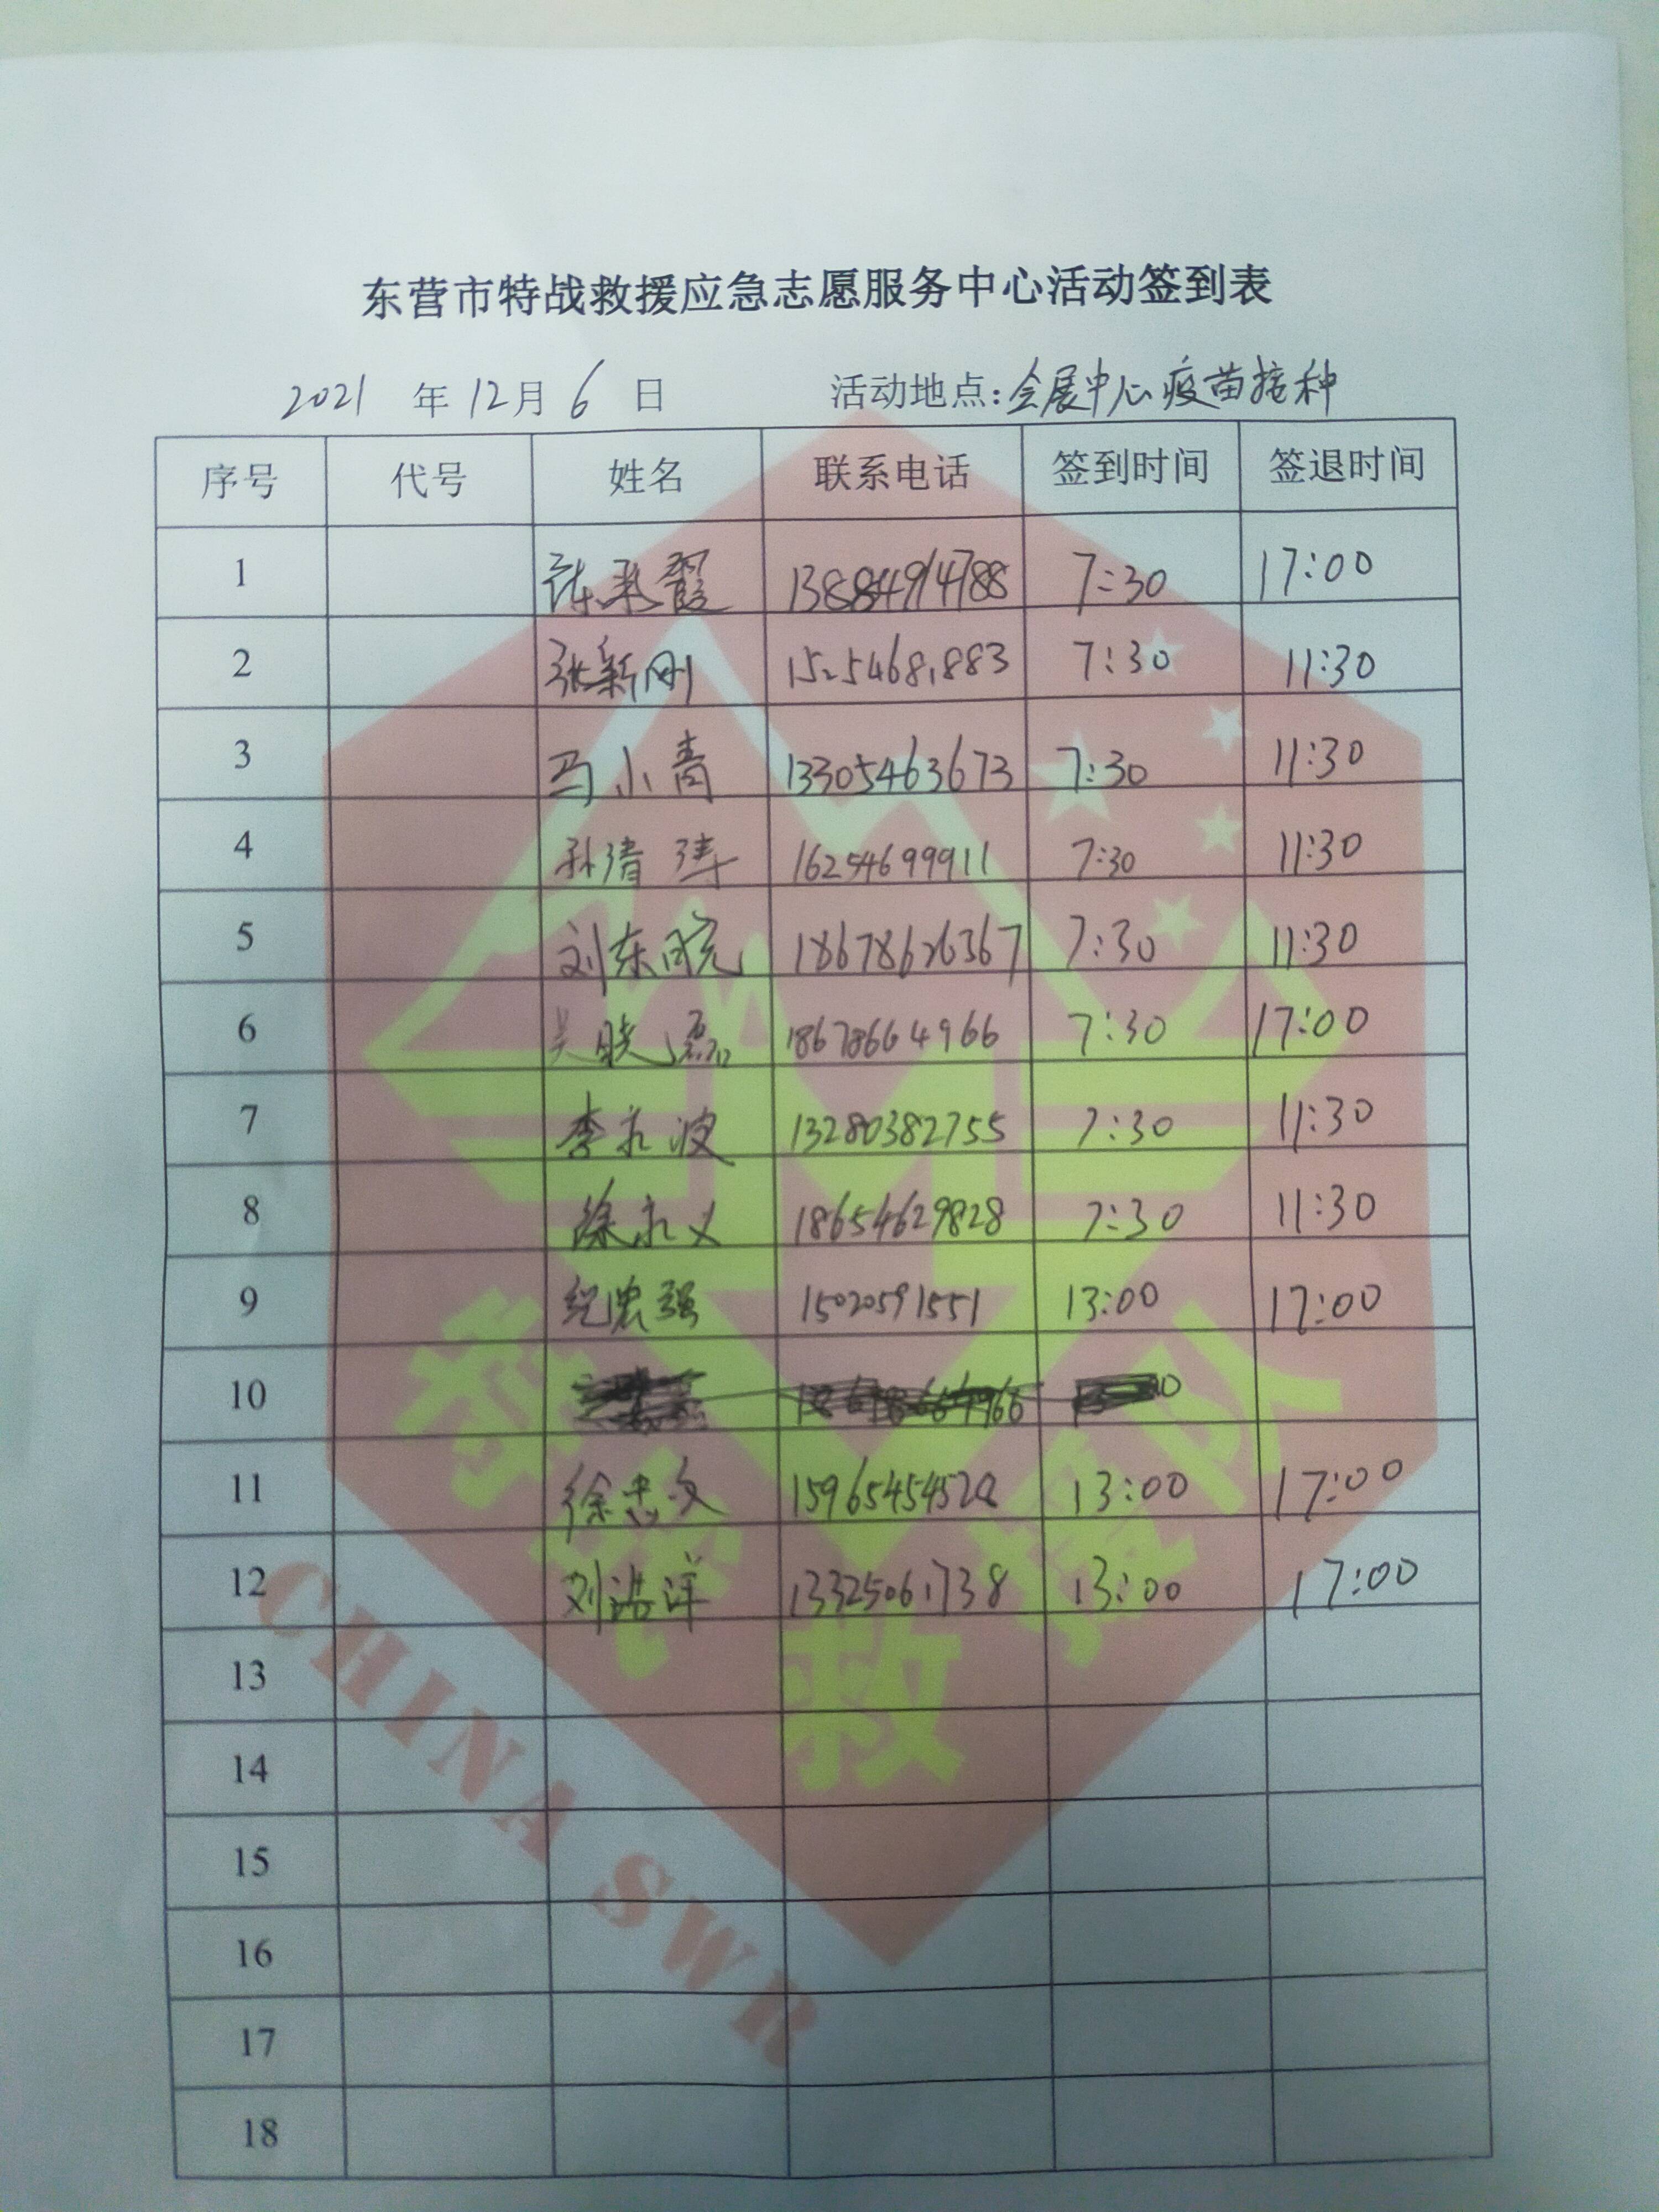 东营市特战救援应急志愿服务中心活动签到表
2021 年 12月 6 日 活动地点:会展中心疫苗接种
序号 代号 姓名 联系电话 签到时间 签退时间
1 13884914788 7:30 17:00
2 张新刚 7:30 11:30
3 马小青 13305463673 7:30 11:30
4 孙清涛 16254699911 7:30 11:30
5 刘东皖 18678626367 7:30 11:30
6 吴晓磊 18678664966 7:30 17:00
7 李永波 13280382755 7:30 11:30
8 徐永义 18654629828 7:30 11:30
9 纪忠强 15020591551 13:00 17:00
10
11 徐忠文 13:00 17:00
12 刘浩洋 13325061738 13:00 17:00
13
14
15
16
17
18
特战救援队
CHINA SWR